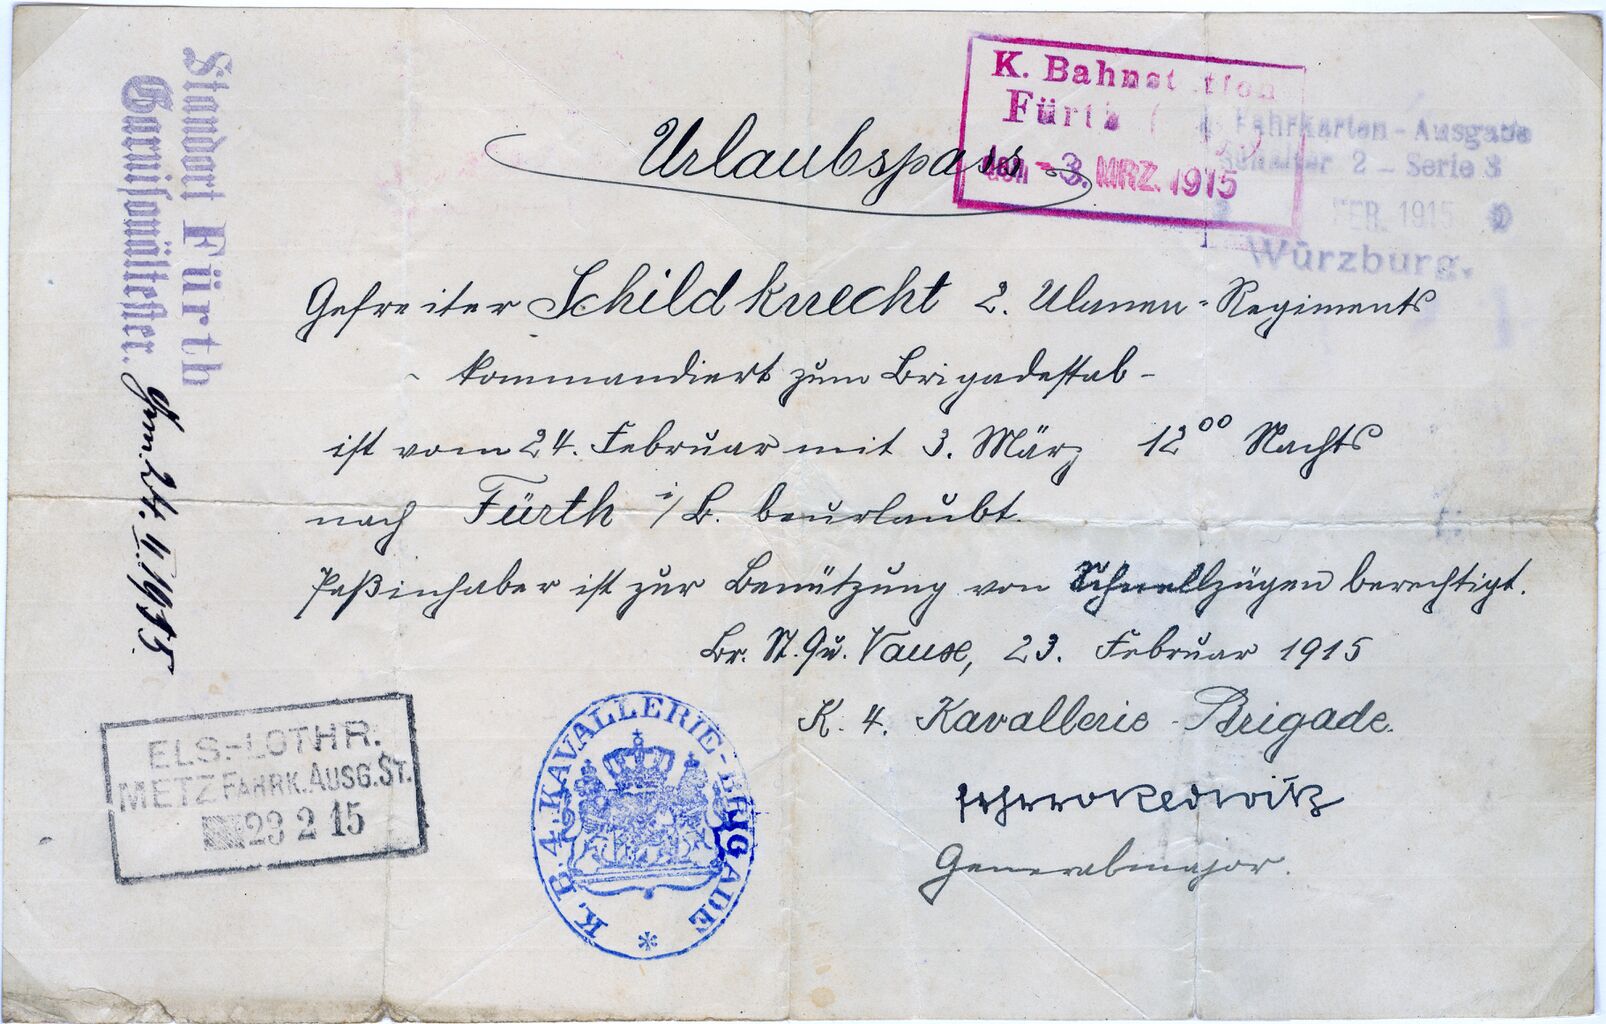 Urlaubspass
K. Bahnstation
Fürth
den -3. MRZ. 1915
Fahrkarten-Ausgabe
Schalter 2 - Serie 3
FEB. 1915
Würzburg.
Gefreiter Schildknecht 2. Ulanen-Regiments
- kommandiert zum Brigadestab -
ist vom 24. Februar mit 3. März 12⁰⁰ Nachts
nach Fürth i/B. beurlaubt.
Paßinhaber ist zur Benützung von Schnellzügen berechtigt.
Br. St. Qu. Vaux, 23. Februar 1915
K. 4. Kavallerie-Brigade.
Generalmajor.
K. B. 4. KAVALLERIE-BRIGADE
ELS.-LOTHR.
METZ FAHRK. AUSG. ST.
23 2 15
Standort Fürth
Garnisonältester.
24. 1915